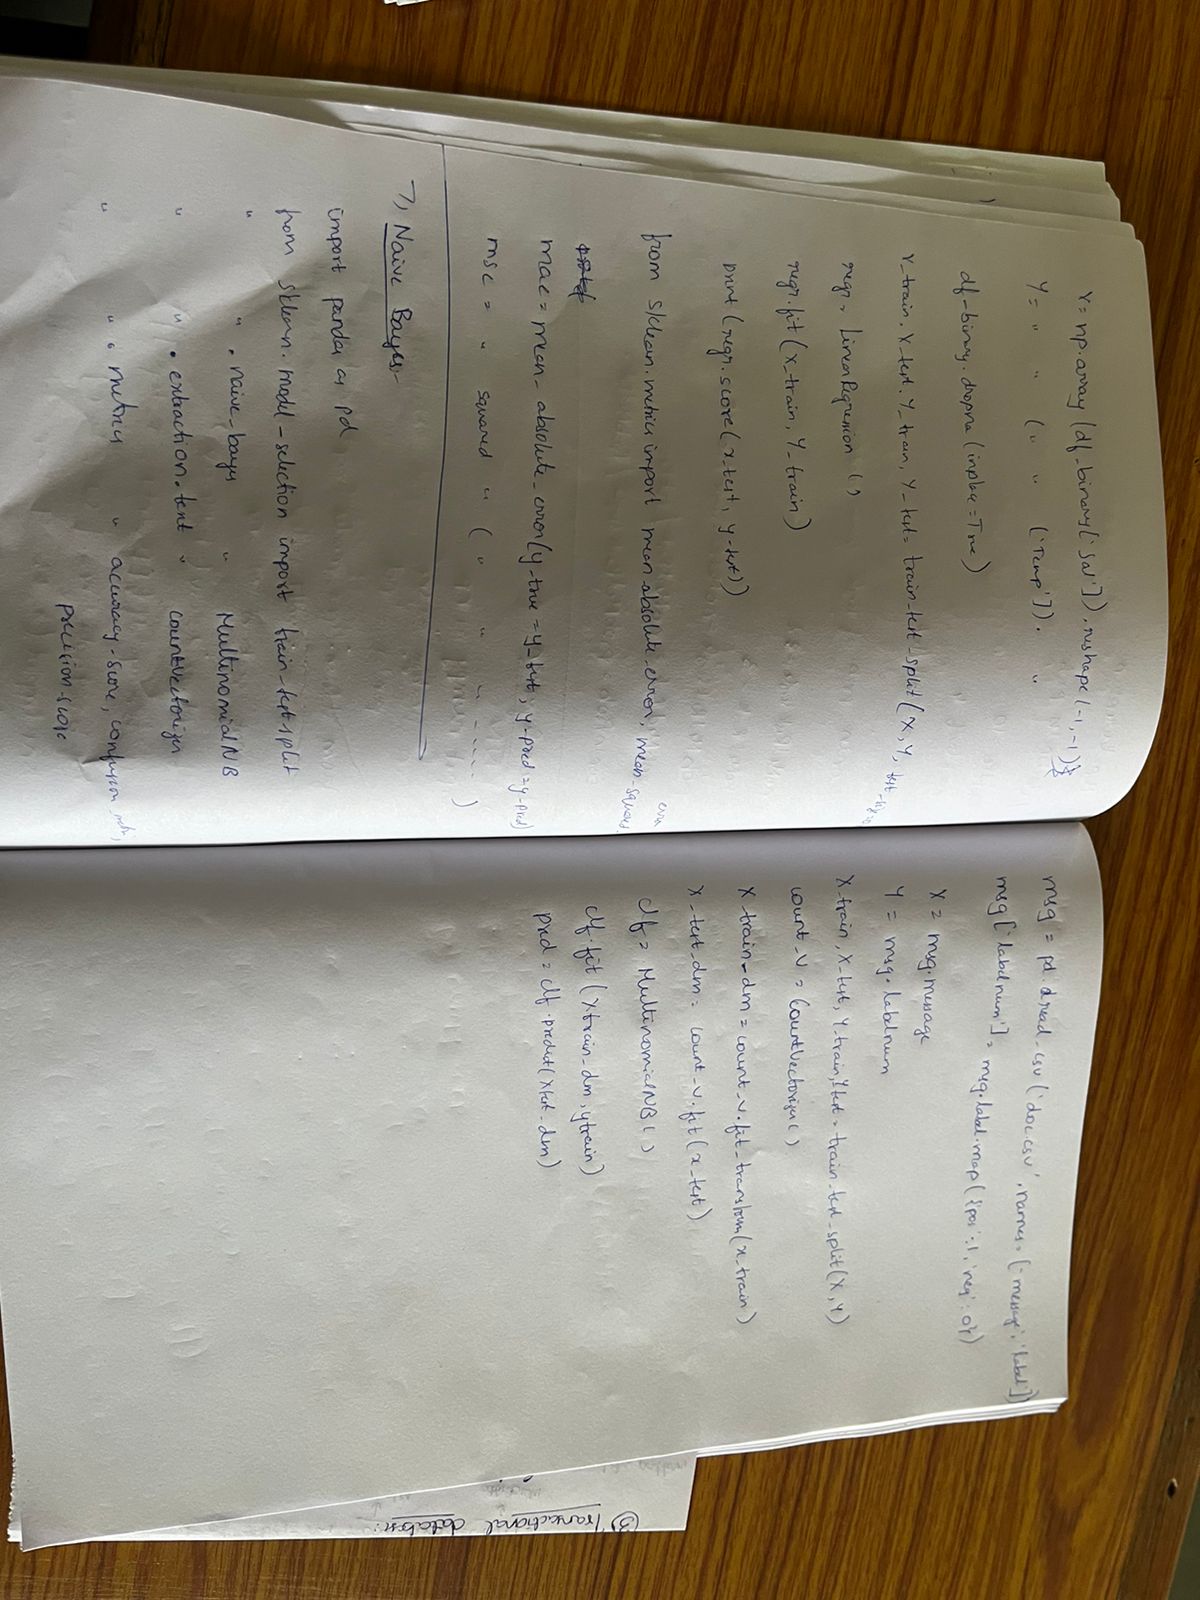 X = np.array(df-binary['Sal']).reshape(-1,-1)
Y = " " ( " " ('Temp']). "
df-binary.dropna(inplace=True)
X_train, X_test, Y_train, Y_test = train_test_split(X, Y, test_
regr = LinearRegression ( )
regr.fit(x_train, Y_train)
print(regr.score(x_test, y-test))
from sklearn.metrics import mean-absolute_error, mean-squared_
error
mae = mean_absolute_error(y-true = y-test, y-pred = y-pred)
mse = " squared " ( " " " ..... )
7, Naive Bayes:-
import pandas as pd
from sklearn.model-selection import train-test-split
" " .naive_bayes " MultinomialNB
" " .extraction.text " CountVectorizer
" " " metrics " accuracy-score, confusion_
precision-score
msg = pd.dread_csv('doc.csv', names = ['message', 'label'])
msg['labelnum'] = msg.label.map({'pos':1, 'neg':0})
X = msg.message
Y = msg.labelnum
X-train, X-test, Y-train, Ytest = train-test-split(X, Y)
count_v = CountVectorizer( )
X-train-dm = count_v.fit_transform(x-train)
X-test-dm = count_v.fit(x-test)
clf = MultinomialNB( )
clf.fit(xtrain_dm, ytrain)
pred = clf.predict(xtest_dm)
③ Transactional database: